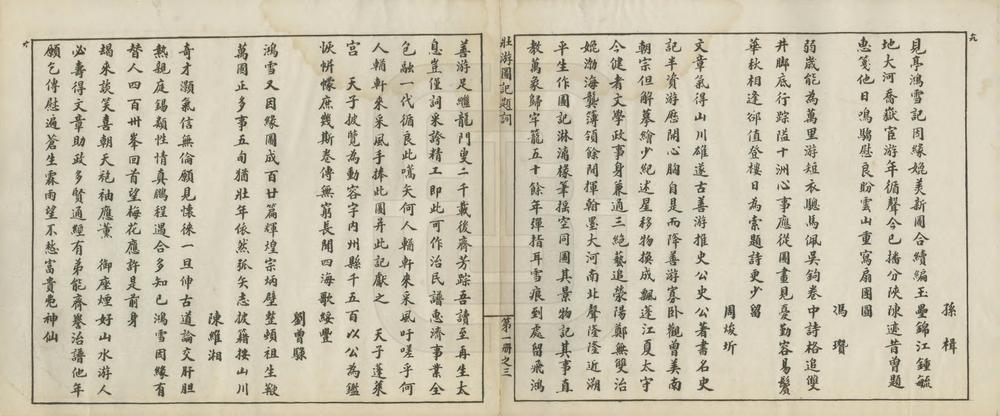 九
孫楫
見亭鴻雪記因緣媲美新圖合續編玉壘錦江鍾毓
地大河喬嶽宦游年循聲今已播分陝陳迹昔曾題
惠箋他日鳴騶慰良盼雲山重寫扇團圓
馮瓚
弱歲能為萬里游短衣驄馬佩吳鉤卷中詩格追雙
井腳底行蹤隘十洲心事應從圖畫見憂勤容易鬢
華秋相逢卻值登樓日為索題詩更少留
周焌圻
文章氣得山川雄遂古善游推史公史公著書名史
記半資游歷開心胸自是而降善游寡臥觀曾美南
朝宗但解摹繪少紀述星移物換成飄蓬江夏太守
今健者文學政事身兼通三絕藝追滎陽鄭無雙治
媲渤海龔簿領餘閒揮翰墨大河南北聲隆隆近溯
平生作圖記淋漓椽筆搖空同圖其景物記其事直
教萬象歸牢籠五十餘年彈指耳雪痕到處留飛鴻
壯游圖記題詞
第一冊之三
善游足繼龍門叟二千載後齊芳踪吾讀至再生太
息豈僅詞采誇精工即此可作治民譜惠濟事業全
包融一代循良此嚆矢何人輶軒來采風吁嗟乎何
人輶軒來采風手捧此圖并此記獻之　天子蓬萊
宮　天子披覽為動容宇內州縣千五百以公為鑑
恢帡幪庶幾斯卷傳無窮長聞四海歌綏豐
劉曾騄
鴻雪又因緣圖成百廿篇輝煌宗炳壁整頓祖生鞭
萬國正多事五旬猶壯年依然弧矢志披籍按山川
陳維湘
奇才灝氣信無倫願見懷徠一旦伸古道論交肝胆
熱親庭錫纇性情真鵬程遇合多知己鴻雪因緣有
替人四百卅峯回首望梅花應許是前身
朅來談笑喜朝天袍袖應薰　御座煙好山水游人
必壽得文章助政多賢通經有弟能齊譽治譜他年
願乞傳慰遍蒼生霖雨望不愁富貴免神仙